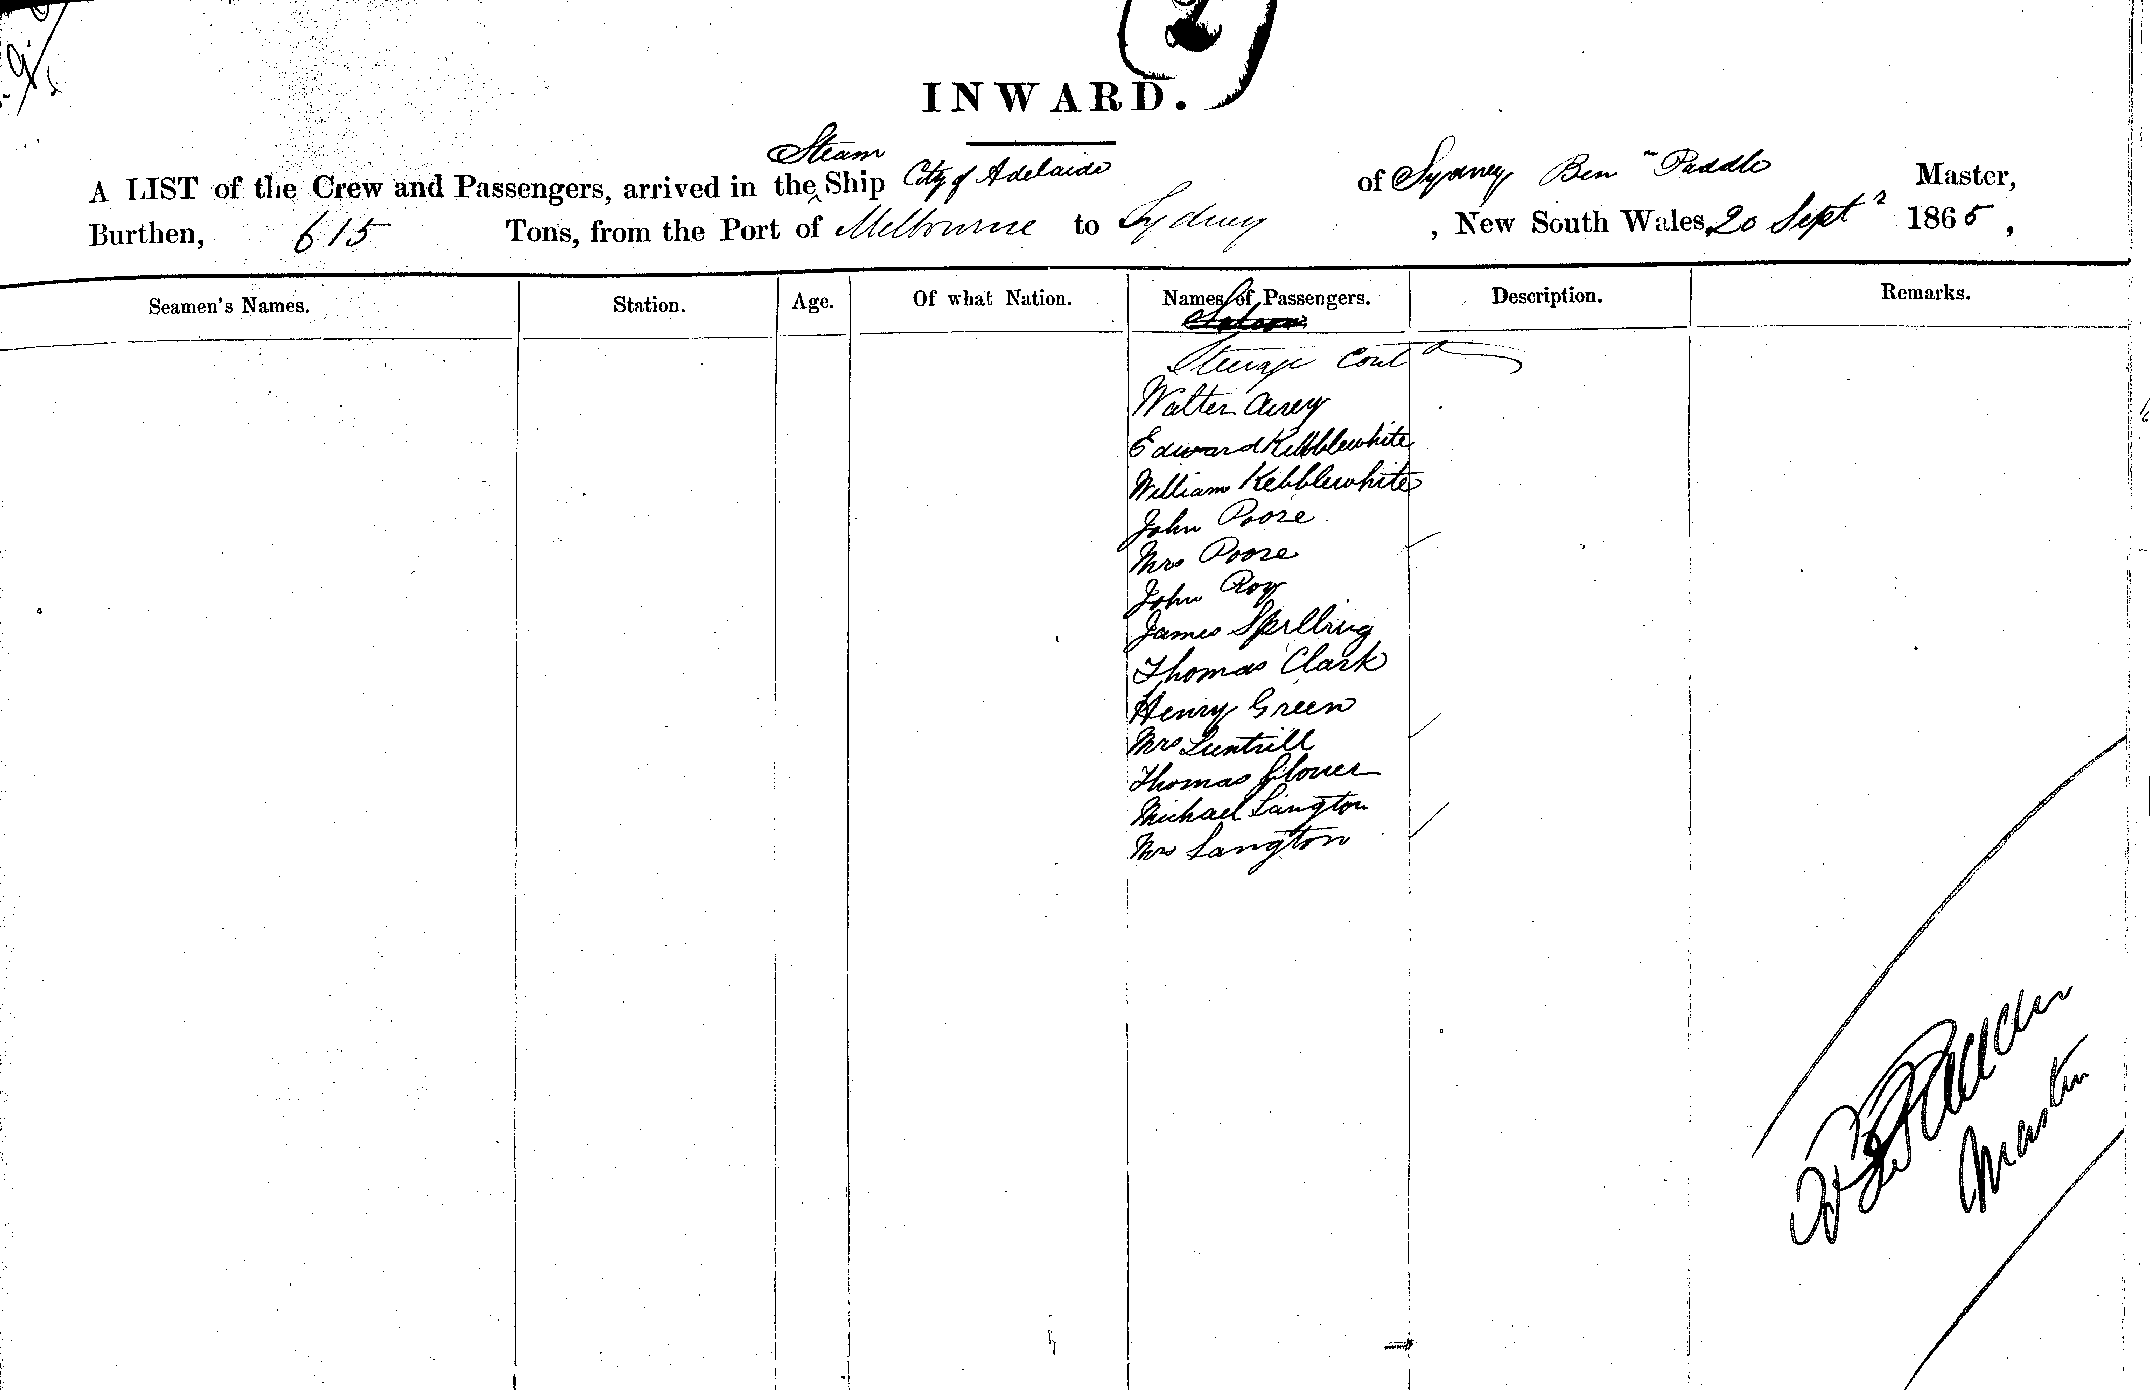 INWARD.
Steam
A LIST of the Crew and Passengers, arrived in the ^ Ship City of Adelaide of Sydney Benn Paddle Master,
Burthen, 615 Tons, from the Port of Melbourne to Sydney , New South Wales, 20 Septr 1865,
Seamen's Names. Station. Age. Of what Nation. Names of Passengers. Description. Remarks.
Saloon
Steerage Contd
Walter Airey
Edward Kebblewhite
William Kebblewhite
John Poore
Mrs Poore
John Roy
James Spelling
Thomas Clark
Henry Green
Mrs
Thomas Glover
Michael Langton
Mrs Langton
Master